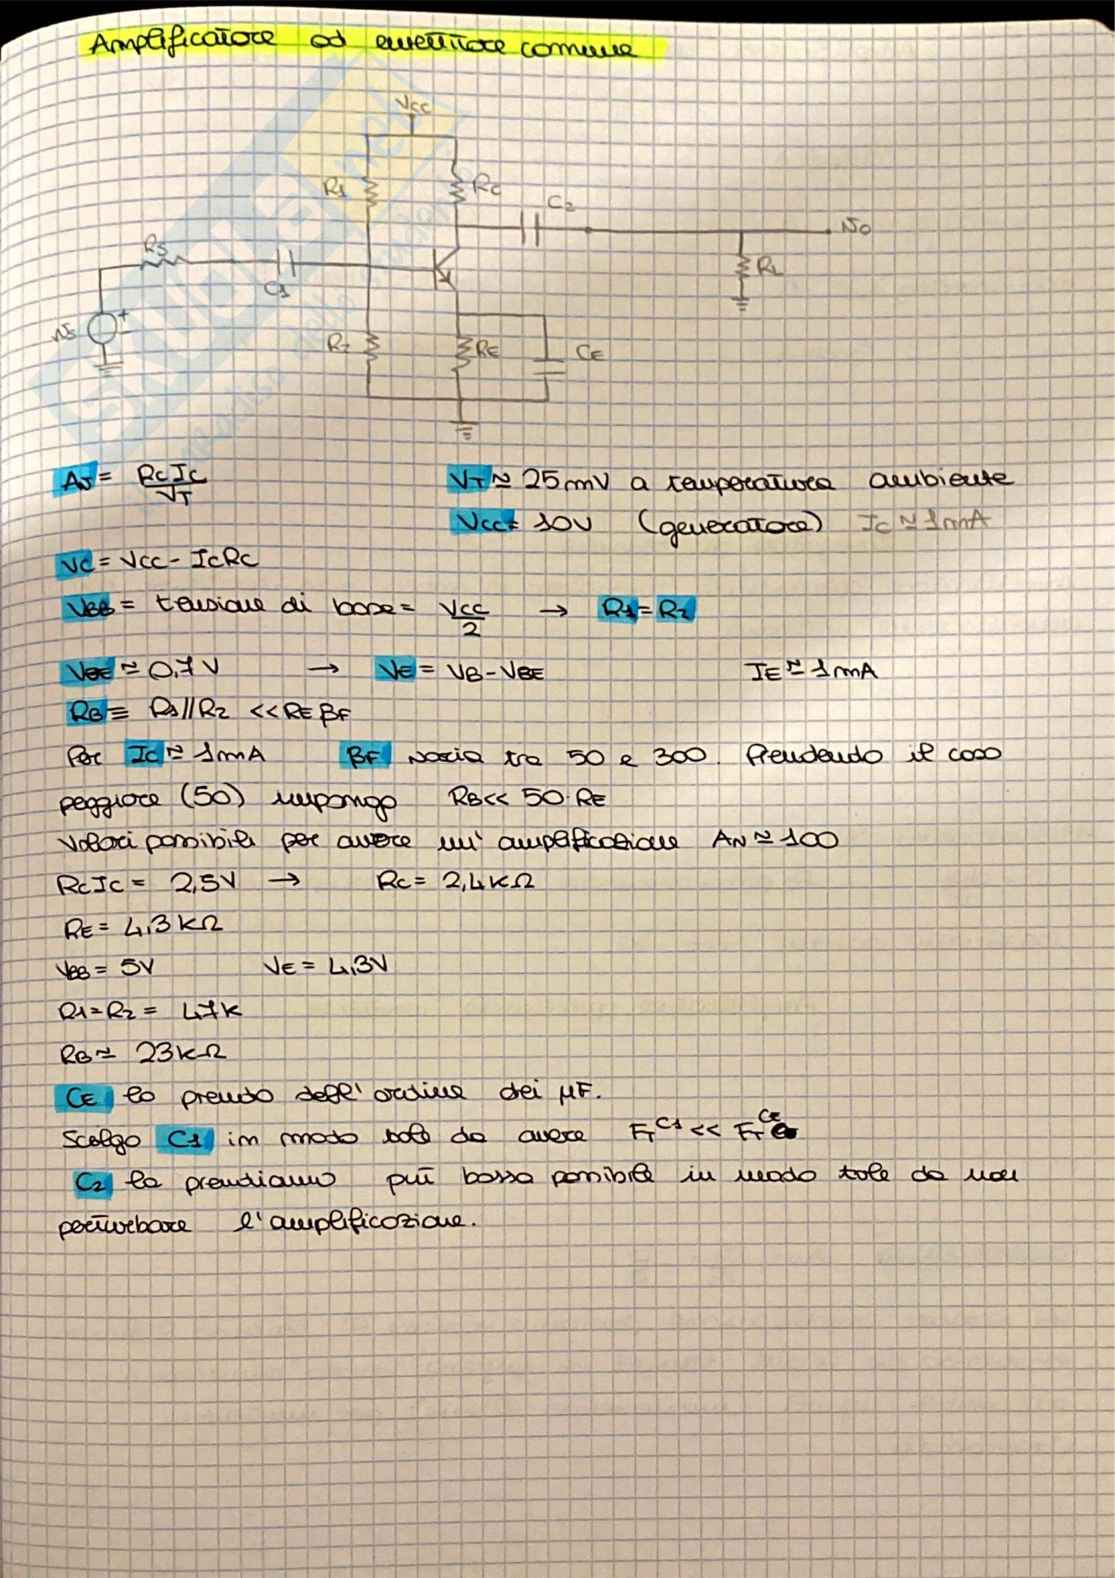 Amplificatore ad emettitore comune
Vcc
R1
Rc
C2
No
RS
RL
C1
Ns
+
R2
RE
CE
Av = RcIc/VT
VT ≃ 25mV a temperatura ambiente
Vcc = 10V (generatore) Ic ≃ 1mA
Vc = Vcc - IcRc
VBB = tensione di base = Vcc/2 → R1 = R2
VBE ≃ 0,7V → VE = VB - VBE IE ≃ 1mA
RB ≡ R1//R2 << RE βF
Per Ic ≃ 1mA βF varia tra 50 e 300. Prendendo il caso
peggiore (50) impongo RB << 50·RE
Valori possibili per avere un'amplificazione Av ≃ 100
RcIc = 2,5V → Rc = 2,4kΩ
RE = 4,3kΩ
VBB = 5V VE = 4,3V
R1=R2 = 47k
RB ≃ 23kΩ
CE lo prendo dell'ordine dei μF.
Scelgo C1 in modo tale da avere FT^C1 << FT^CE
C2 la prendiamo più bassa possibile in modo tale da non
perturbare l'amplificazione.